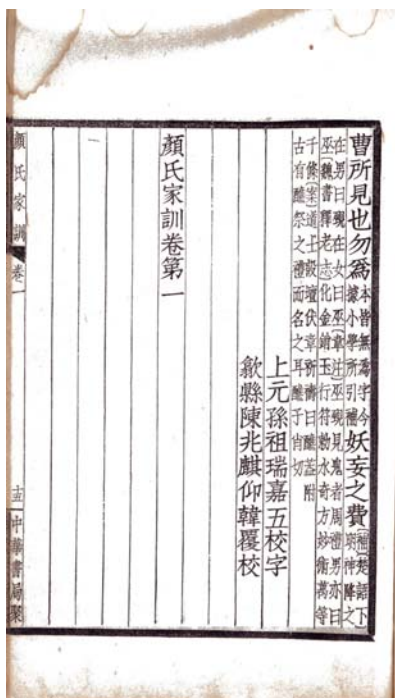 曹所見也勿爲本皆無爲字今據小學所引補妖妄之費〔補楚語下〕明神降之
在男曰覡在女曰巫〔韋注〕巫覡見鬼者周禮男亦曰
巫〔魏書釋老志〕化金銷玉行符勅水奇方妙術萬等
千條〔案〕道士設壇伏章祈禱曰醮蓋附
古有醮祭之禮而名之耳醮子肖切
上元孫祖瑞嘉五校字
歙縣陳兆麒仰韓覆校
顏氏家訓卷第一
顏氏家訓 卷一 十三 中華書局聚